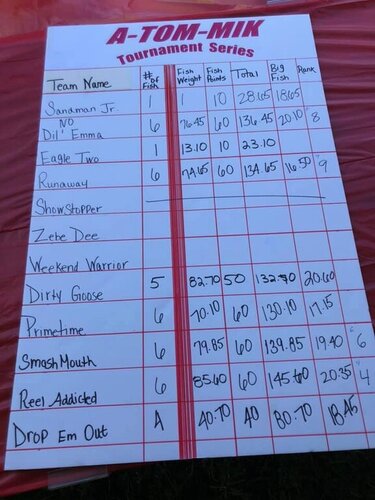 A-TOM-MIK
Tournament Series
Team Name # of Fish Fish Weight Fish Points Total Big Fish Rank
Sandman Jr. 1 1 10 28.65 18.65
NO
Dil' Emma 6 76.45 60 136.45 20.10 8
Eagle Two 1 13.10 10 23.10
Runaway 6 74.65 60 134.65 16.50 9
Showstopper
Zebe Dee
Weekend Warrior
Dirty Goose 5 82.70 50 132.70 20.60
Primetime 6 70.10 60 130.10 17.15
Smash Mouth 6 79.85 60 139.85 19.40 6
Reel Addicted 6 85.60 60 145.60 20.35 4
Drop Em Out 4 40.70 40 80.70 18.45